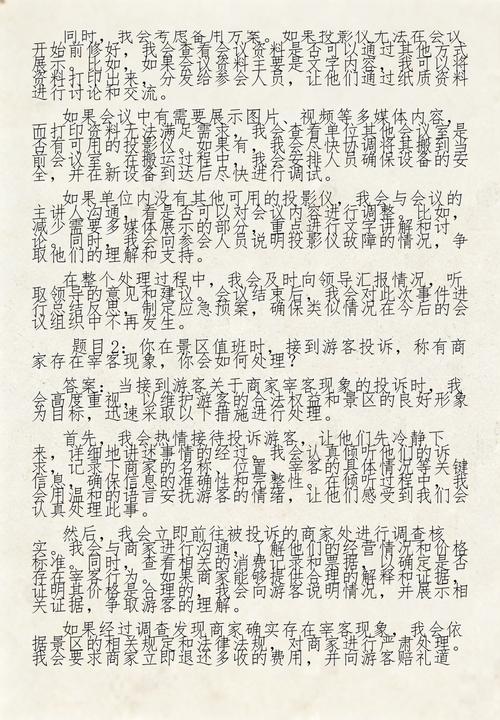 同时，我会考虑备用方案。如果投影仪无法在会议
开始前修好，我会查看会议资料是否可以通过其他方式
展示。比如，如果会议资料主要是文字内容，我可以将
资料打印出来，分发给参会人员，让他们通过纸质资料
进行讨论和交流。
如果会议中有需要展示图片、视频等多媒体内容，
而打印资料无法满足需求，我会查看单位其他会议室是
否有可用的投影仪。如果有，我会尽快协调将其搬到当
前会议室。在搬运过程中，我会安排人员确保设备的安
全，并在新设备到达后尽快进行调试。
如果单位内没有其他可用的投影仪，我会与会议的
主讲人沟通，看是否可以对会议内容进行调整。比如，
减少需要多媒体展示的部分，重点进行文字讲解和讨
论。同时，我会向参会人员说明投影仪故障的情况，争
取他们的理解和支持。
在整个处理过程中，我会及时向领导汇报情况，听
取领导的意见和建议。会议结束后，我会对此次事件进
行总结反思，制定应急预案，确保类似情况在今后的会
议组织中不再发生。
题目2：你在景区值班时，接到游客投诉，称有商
家存在宰客现象，你会如何处理？
答案：当接到游客关于商家宰客现象的投诉时，我
会高度重视，以维护游客的合法权益和景区的良好形象
为目标，迅速采取以下措施进行处理。
首先，我会热情接待投诉游客，让他们先冷静下
来，详细地讲述事情的经过。我会认真倾听他们的诉
求，记录下商家的名称、位置、宰客的具体情况等关键
信息，确保信息的准确性和完整性。在倾听过程中，我
会用温和的语言安抚游客的情绪，让他们感受到我们会
认真处理此事。
然后，我会立即前往被投诉的商家处进行调查核
实。我会与商家进行沟通，了解他们的经营情况和价格
标准。同时，查看相关的消费记录和票据，以确定是否
存在宰客行为。如果商家能够提供合理的解释和证据，
证明其价格是合理的，我会向游客说明情况，并展示相
关证据，争取游客的理解。
如果经过调查发现商家确实存在宰客现象，我会依
据景区的相关规定和法律法规，对商家进行严肃处理。
我会要求商家立即退还多收的费用，并向游客赔礼道